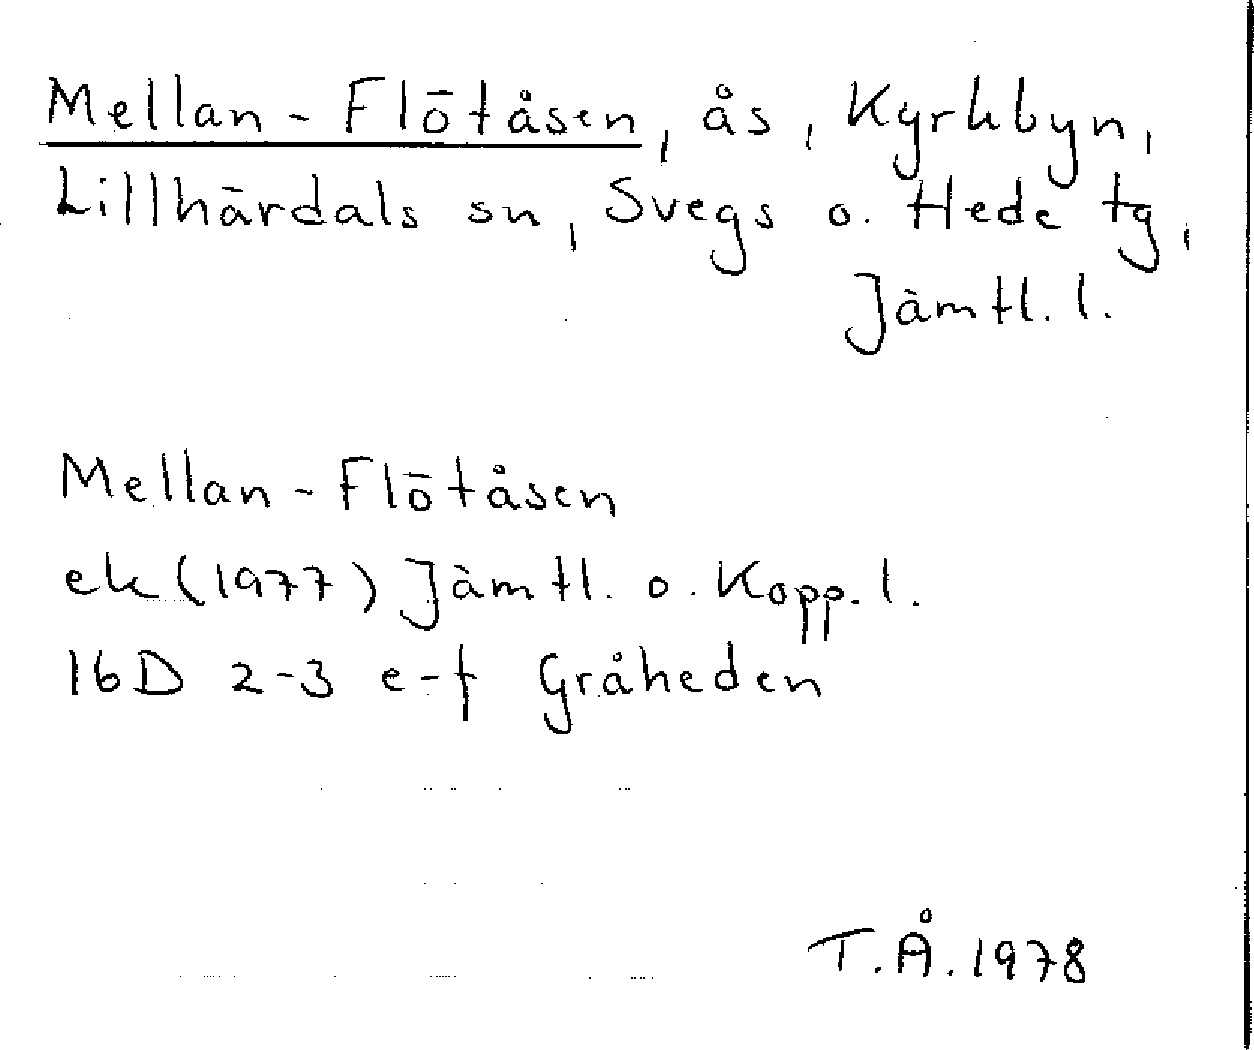 Mellan-Flötåsen, ås, Kyrkbyn,
Lillhärdals sn, Svegs o. Hede tg,
Jämtl. l.
Mellan-Flötåsen
ek (1977) Jämtl. o. Kopp. l.
16D 2-3 e-f Gråheden
T.Å. 1978